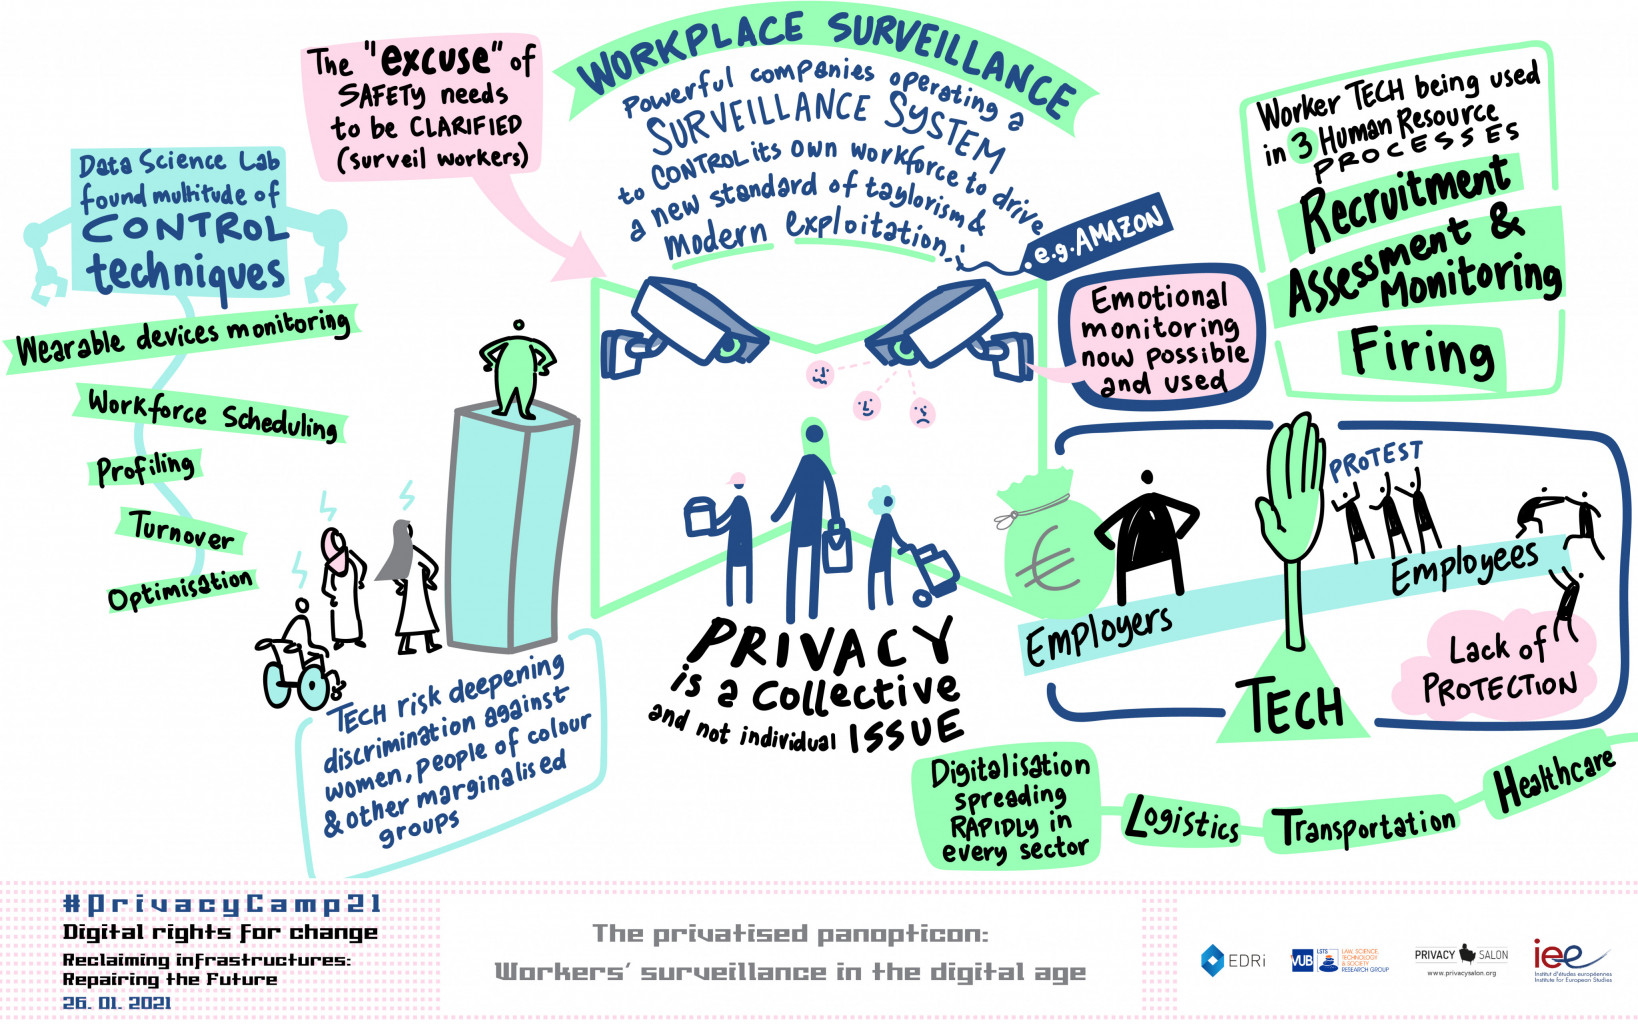 WORKPLACE SURVEILLANCE
Powerful companies operating a
SURVEILLANCE SYSTEM
to CONTROL its own workforce to drive
a new standard of taylorism &
modern exploitation.
e.g. AMAZON
The "excuse" of
SAFETY needs
to be CLARIFIED
(surveil workers)
Data Science Lab
found multitude of
CONTROL
techniques
Wearable devices monitoring
Workforce Scheduling
Profiling
Turnover
Optimisation
TECH risk deepening
discrimination against
women, people of colour
& other marginalised
groups
PRIVACY
is a collective
and not individual ISSUE
Emotional
monitoring
now possible
and used
Worker TECH being used
in 3 Human Resource
PROCESSES
Recruitment
Assessment &
Monitoring
Firing
PROTEST
€
Employers
Employees
TECH
Lack of
PROTECTION
Digitalisation
spreading
RAPIDLY in
every sector
Logistics
Transportation
Healthcare
#PrivacyCamp21
Digital rights for change
Reclaiming infrastructures:
Repairing the Future
26. 01. 2021
The privatised panopticon:
Workers' surveillance in the digital age
EDRi
VUB
LSTS
LAW, SCIENCE,
TECHNOLOGY
& SOCIETY
RESEARCH GROUP
PRIVACY SALON
www.privacysalon.org
iee
Institut d'études européennes
Institute for European Studies